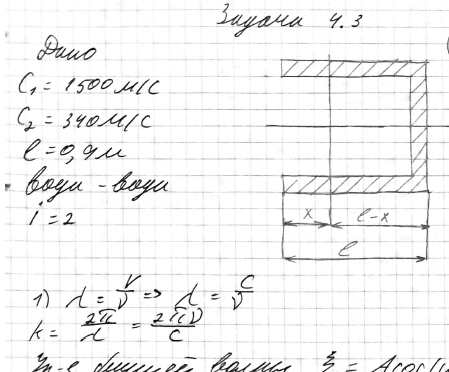 Задача 4.3
Дано
C₁ = 1500 м/с
C₂ = 340 м/с
l = 0,9 м
воды - воды
i = 2
x
l-x
l
1) λ = V/ν => λ = C/ν
k = 2π/λ = 2πν/C
волны ξ = Acos(